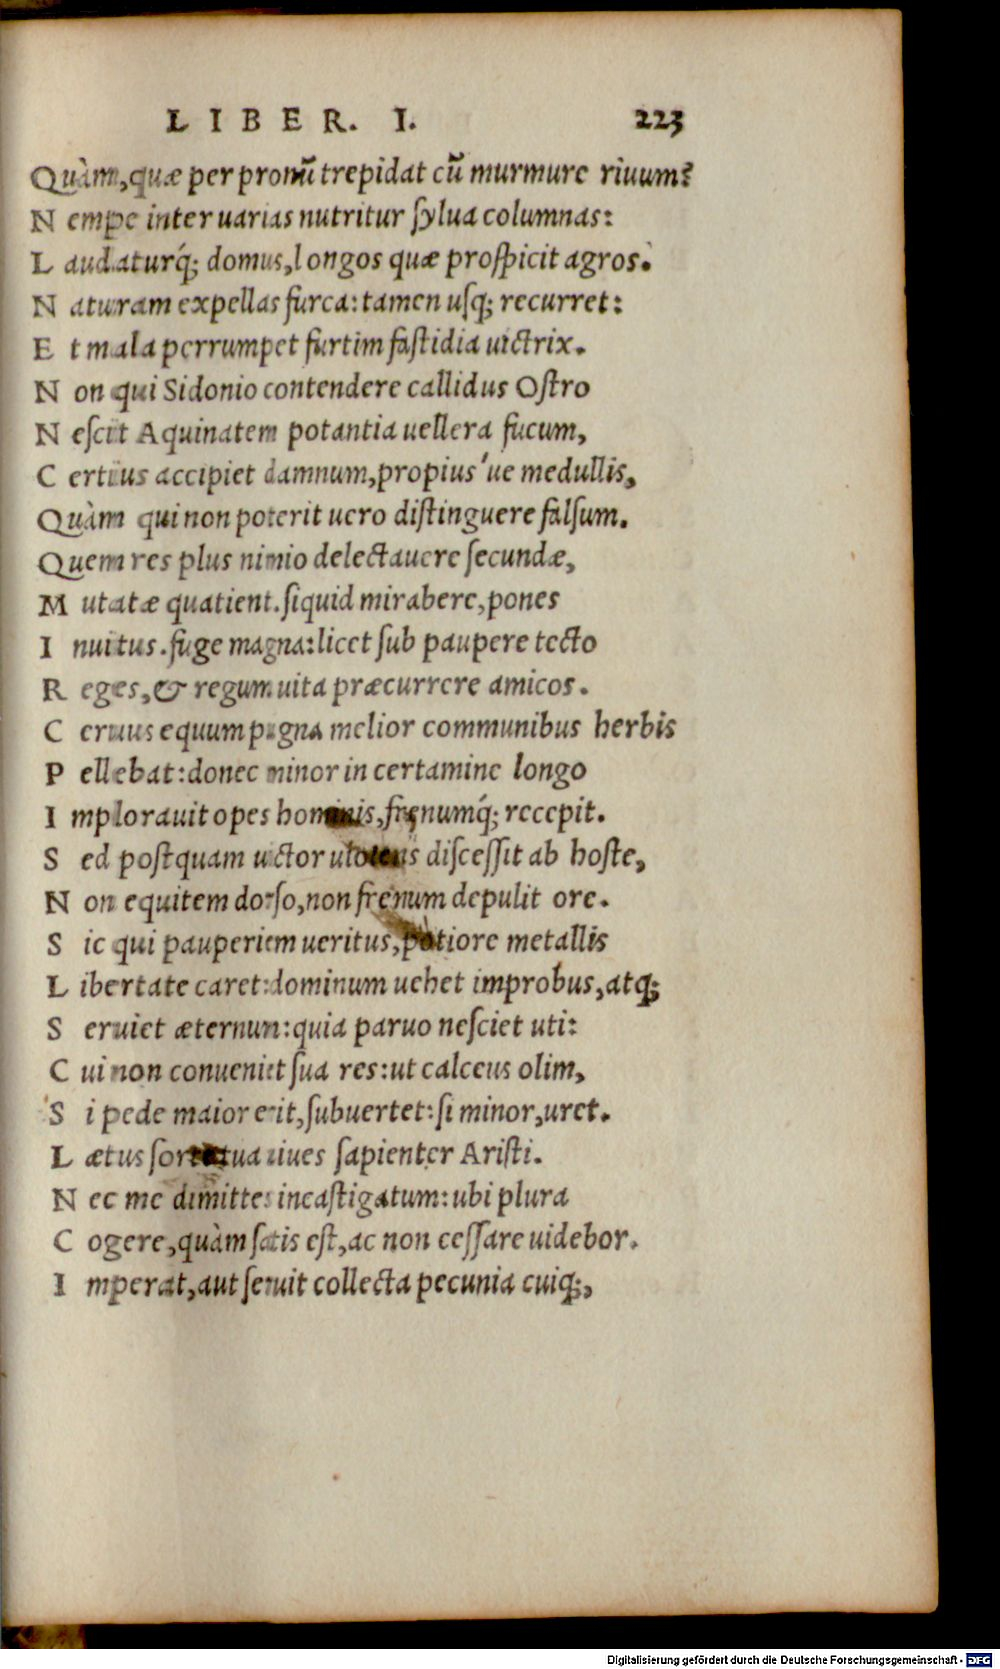 LIBER. I. 223
Quàm, quæ per pronũ trepidat cũ murmure riuum?
N empe inter uarias nutritur sylua columnas:
L audaturq́; domus, longos quæ prospicit agros.
N aturam expellas furca: tamen usq; recurret:
E t mala perrumpet furtim fastidia uictrix.
N on qui Sidonio contendere callidus Ostro
N escit Aquinatem potantia uellera fucum,
C ertius accipiet damnum, propius' ue medullis,
Quàm qui non poterit uero distinguere falsum.
Quem res plus nimio delectauere secundæ,
M utatæ quatient. siquid mirabere, pones
I nuitus. fuge magna: licet sub paupere tecto
R eges, & regum uita præcurrere amicos.
C eruus equum pugna melior communibus herbis
P ellebat: donec minor in certamine longo
I mplorauit opes hominis, frenumq́; recepit.
S ed postquam uictor uiolens discessit ab hoste,
N on equitem dorso, non frenum depulit ore.
S ic qui pauperiem ueritus, potiore metallis
L ibertate caret: dominum uehet improbus, atq;
S eruiet æternum: quia paruo nesciet uti:
C ui non conueniet sua res: ut calceus olim,
S i pede maior erit, subuertet: si minor, uret.
L ætus sorte tua uiues sapienter Aristi.
N ec me dimittes incastigatum: ubi plura
C ogere, quàm satis est, ac non cessare uidebor.
I mperat, aut seruit collecta pecunia cuiq;,
Digitalisierung gefördert durch die Deutsche Forschungsgemeinschaft - DFG